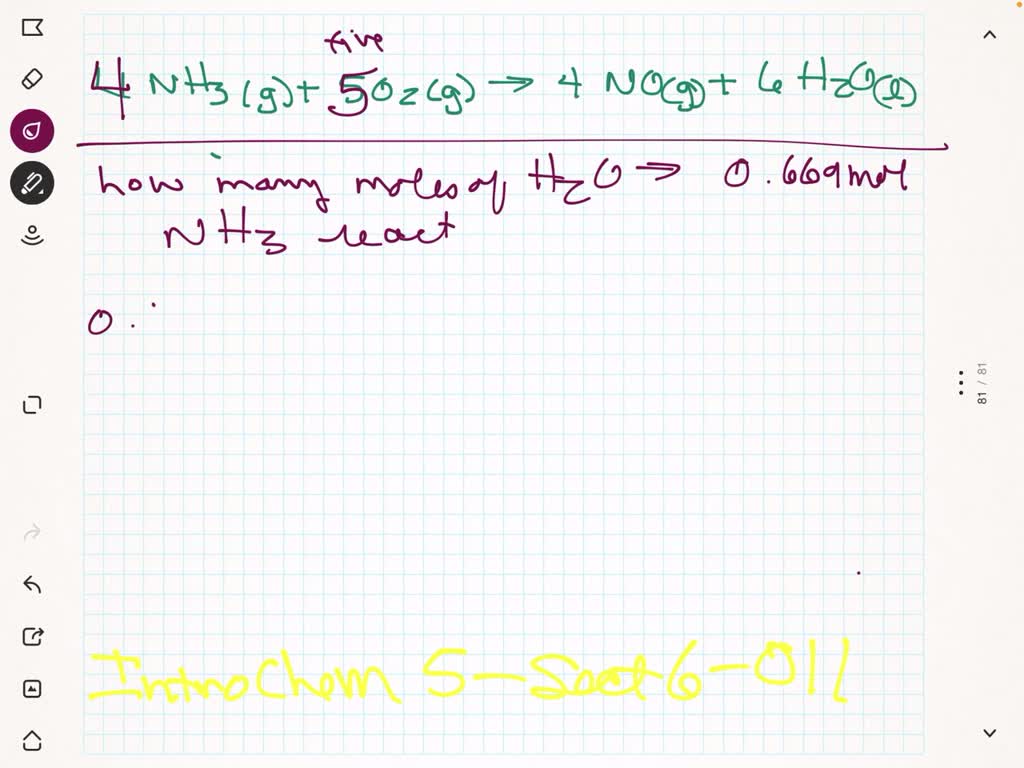 five
4 NH3(g) + 5O2(g) → 4 NO(g) + 6 H2O(l)
how many moles of H2O → 0.669 mol
NH3 react
0.
81 / 81
Intro Chem 5-Sect 6-011